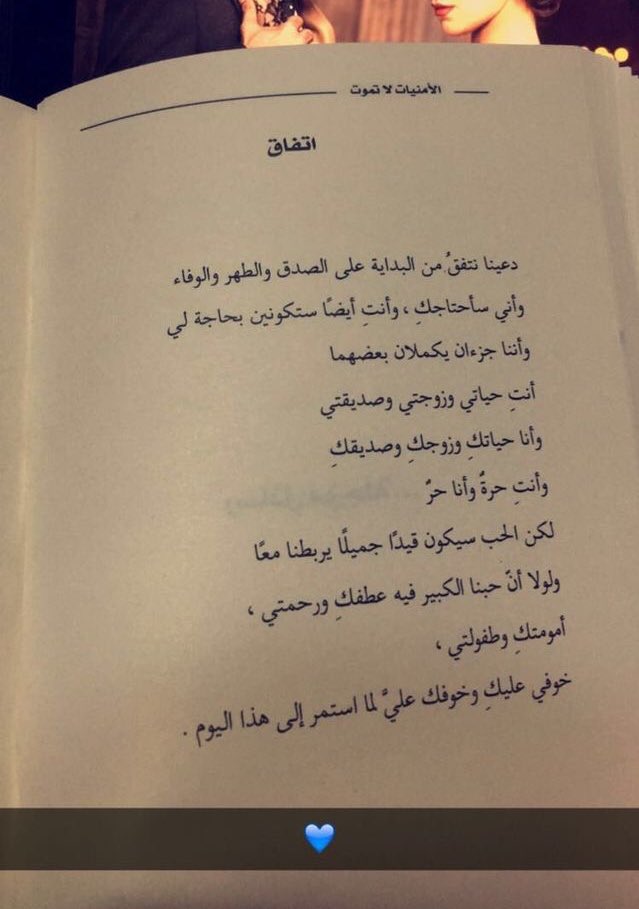 الأمنيات لا تموت
اتفاق
دعينا نتفقُ من البداية على الصدق والطهر والوفاء
وأني سأحتاجكِ ، وأنتِ أيضًا ستكونين بحاجة لي
وأننا جزءان يكملان بعضهما
أنتِ حياتي وزوجتي وصديقتي
وأنا حياتكِ وزوجكِ وصديقكِ
وأنتِ حرةٌ وأنا حرٌ
لكن الحب سيكون قيدًا جميلًا يربطنا معًا
ولولا أنّ حبنا الكبير فيه عطفكِ ورحمتي ،
أمومتكِ وطفولتي ،
خوفي عليكِ وخوفك عليَّ لما استمر إلى هذا اليوم .